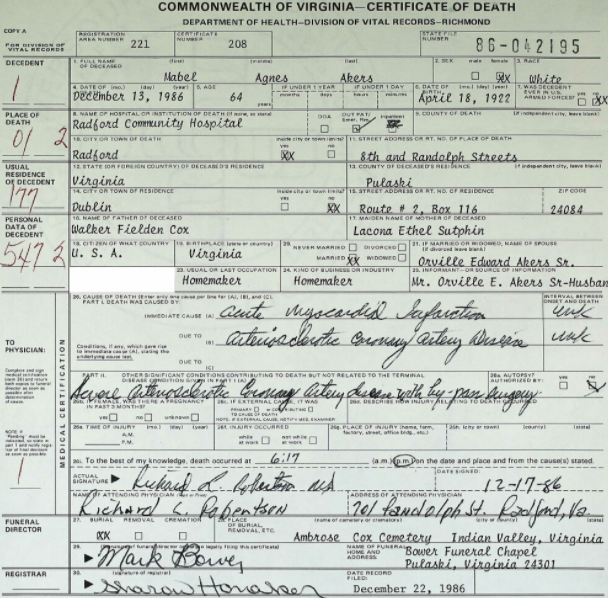 COMMONWEALTH OF VIRGINIA—CERTIFICATE OF DEATH
DEPARTMENT OF HEALTH—DIVISION OF VITAL RECORDS—RICHMOND
COPY A
FOR DIVISION OF VITAL RECORDS
REGISTRATION AREA NUMBER 221 CERTIFICATE NUMBER 208 STATE FILE NUMBER 86-042195
DECEDENT
1
1. FULL NAME OF DECEASED (first) (middle) (last) 2. SEX male female 3. RACE
Mabel Agnes Akers XX White
4. DATE OF DEATH (mo.) (day) (year) 5. AGE IF UNDER 1 YEAR IF UNDER 1 DAY 6. DATE OF BIRTH (mo.) (day) (year) 7. WAS DECEDENT EVER IN U.S. ARMED FORCES? yes no
December 13, 1986 64 years months days hours minutes April 18, 1922 XX
PLACE OF DEATH
01 2
8. NAME OF HOSPITAL OR INSTITUTION OF DEATH (if none, so state) DOA OUT PAT/ Emer. Rm. Inpatient 9. COUNTY OF DEATH (if independent city, leave blank)
Radford Community Hospital
10. CITY OR TOWN OF DEATH inside city or town limits? yes no 11. STREET ADDRESS OR RT. NO. OF PLACE OF DEATH
Radford XX 8th and Randolph Streets
USUAL RESIDENCE OF DECEDENT
177
12. STATE (OR FOREIGN COUNTRY) OF DECEASED'S RESIDENCE 13. COUNTY OF DECEASED'S RESIDENCE (if independent city, leave blank)
Virginia Pulaski
14. CITY OR TOWN OF RESIDENCE inside city or town limits? yes no 15. STREET ADDRESS OR RT. NO. OF RESIDENCE ZIP CODE
Dublin XX Route # 2, Box 116 24084
PERSONAL DATA OF DECEDENT
547 2
16. NAME OF FATHER OF DECEASED 17. MAIDEN NAME OF MOTHER OF DECEASED
Walker Fielden Cox Lacona Ethel Sutphin
18. CITIZEN OF WHAT COUNTRY 19. BIRTHPLACE (state or country) 20. NEVER MARRIED DIVORCED 21. IF MARRIED OR WIDOWED, NAME OF SPOUSE (if divorced leave blank)
U. S. A. Virginia MARRIED XX WIDOWED Orville Edward Akers Sr.
23. USUAL OR LAST OCCUPATION 24. KIND OF BUSINESS OR INDUSTRY 25. INFORMANT—OR SOURCE OF INFORMATION
Homemaker Homemaker Mr. Orville E. Akers Sr-Husban
TO PHYSICIAN:
MEDICAL CERTIFICATION
26. CAUSE OF DEATH (Enter only one cause per line for (A), (B), and (C).) INTERVAL BETWEEN ONSET AND DEATH
PART I. DEATH WAS CAUSED BY:
IMMEDIATE CAUSE (A) Acute Myocardial Infarction unk
DUE TO (B) Arteriosclerotic Coronary Artery Disease unk
Conditions, if any, which gave rise to immediate cause (A), stating the underlying cause last.
DUE TO (C)
PART II. OTHER SIGNIFICANT CONDITIONS CONTRIBUTING TO DEATH BUT NOT RELATED TO THE TERMINAL DISEASE CONDITION GIVEN IN PART I (A) 26a. AUTOPSY? AUTHORIZED BY: yes no
Severe Arteriosclerotic Coronary Artery disease with by-pass surgery
26b. IF FEMALE, WAS THERE A PREGNANCY IN PAST 3 MONTHS? yes no unknown
26c. IF EXTERNAL CAUSE, IT WAS PRIMARY or CONTRIBUTING TO CAUSE OF DEATH
26d. DESCRIBE HOW INJURY RELATING TO DEATH OCCURRED
26e. TIME OF INJURY (mo.) (day) (year) A.M. P.M. 26f. INJURY OCCURRED while at work not while at work 26g. PLACE OF INJURY (home, farm, factory, street, office bldg., etc.) 26h. (city or town) (county) (state)
26i. To the best of my knowledge, death occurred at 6:17 (a.m.) (p.m.) on the date and place and from the cause(s) stated.
ACTUAL SIGNATURE Richard L. Robertson MD DATE SIGNED: 12-17-86
NAME OF ATTENDING PHYSICIAN ADDRESS OF ATTENDING PHYSICIAN
Richard L. Robertson 701 Randolph St. Radford, Va.
FUNERAL DIRECTOR
27. BURIAL REMOVAL CREMATION 28. PLACE OF BURIAL, REMOVAL, ETC. (name of cemetery or crematory) (city or county) (state)
XX Ambrose Cox Cemetery Indian Valley, Virginia
29. (signature of funeral director or person legally filing this certificate) NAME OF FUNERAL HOME AND ADDRESS
Mark Bower Bower Funeral Chapel
Pulaski, Virginia 24301
REGISTRAR
30. (signature of registrar) DATE RECORD FILED:
Sharon Honaker December 22, 1986